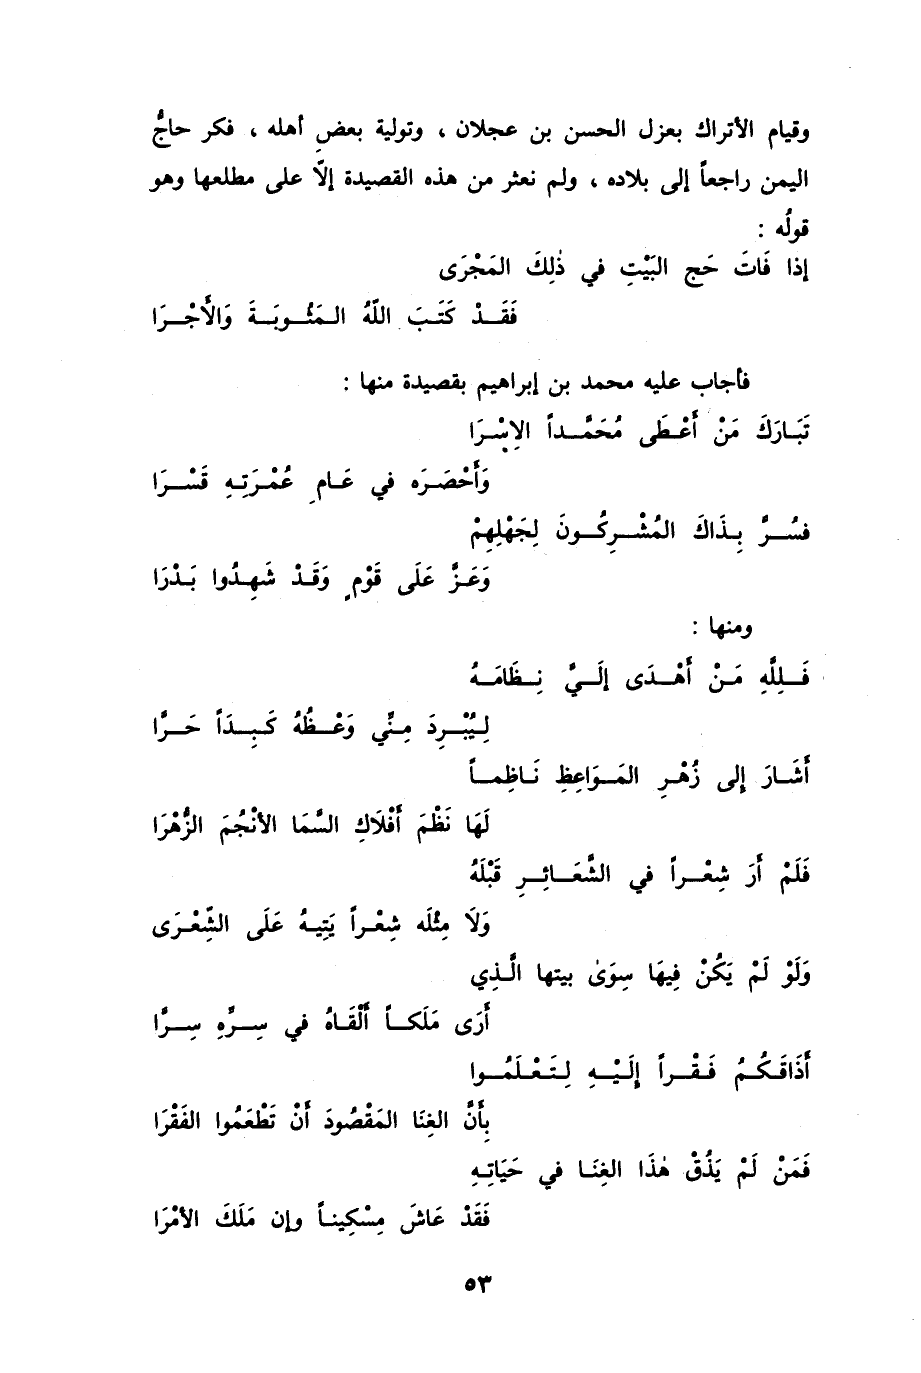 وقيام الأتراك بعزل الحسن بن عجلان ، وتولية بعض أهله ، فكر حاجُّ
اليمن راجعاً إلى بلاده ، ولم نعثر من هذه القصيدة إلّا على مطلعها وهو
قولُه :
إذا فَاتَ حَج البَيْتِ في ذٰلِكَ المَجْرَى
فَقَـدْ كَتَـبَ اللّهُ الـمَثُـوبَـةَ وَالأَجْـرَا
فأجاب عليه محمد بن إبراهيم بقصيدة منها :
تَبَـارَكَ مَنْ أَعْـطَى مُحَمَّـداً الإسْـرَا
وَأَحْصَـرَه في عَـامِ عُمْـرَتِـهِ قَسْـرَا
فسُـرَّ بِـذَاكَ المُشْـرِكُـونَ لِجَهْلِهِمْ
وَعَـزَّ عَلَى قَوْمٍ وَقَـدْ شَهِـدُوا بَـدْرَا
ومنها :
فَـلِلَّهِ مَـنْ أَهْـدَى إلَـيَّ نِـظَامَـهُ
لِـيُبْـرِدَ مِنِّي وَعْـظُهُ كَـبِـدَاً حَـرَّا
أَشَـارَ إلى زُهْـرِ المَـوَاعِظِ نَـاظِمـاً
لَهَا نَظْمَ أَفْلَاكِ السَّمَا الأنْجُمَ الزُّهْرَا
فَلَمْ أرَ شِعْـراً في الشَّعَـائِـرِ قَبْلَهُ
وَلَا مِثْلَه شِعْـراً يَتِيـهُ عَلَى الشِّعْـرَى
وَلَوْ لَمْ يَكُنْ فِيهَا سِوَىٰ بيتها الَّـذِي
أَرَى مَلَكـاً أَلْقَـاهُ في سِـرِّهِ سِـرَّا
أَذَاقَـكُـمُ فَـقْـراً إلَـيْـهِ لِـتَـعْـلَمُـوا
بِأَنَّ الغِنَا المَقْصُودَ أنْ تَطْعَمُوا الفَقْرَا
فَمَنْ لَمْ يَذُقْ هٰذَا الغِنَـا في حَيَاتِـهِ
فَقَدْ عَاشَ مِسْكِينـاً وإن مَلَكَ الأمْرَا
٥٣